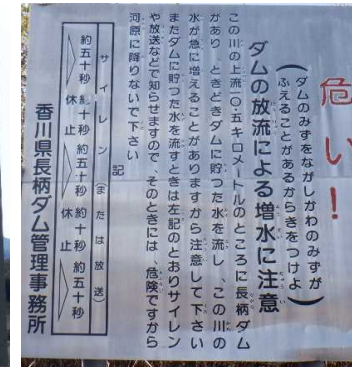 危い！
（ダムのみずをながしかわのみずが
ふえることがあるからきをつけよ）
ダムの放流による増水に注意
この川の上流〇・五キロメートルのところに長柄ダム
があり、ときどきダムに貯つた水を流し、この川の
水が急に増えることがありますから注意して下さい
またダムに貯つた水を流すときは左記のとおりサイレン
や放送などで知らせますので、そのときには、危険ですから
河原に降りないで下さい
記
サイレン（または放送）
約五十秒
約十秒
休止
約五十秒
約十秒
休止
約五十秒
香川県長柄ダム管理事務所